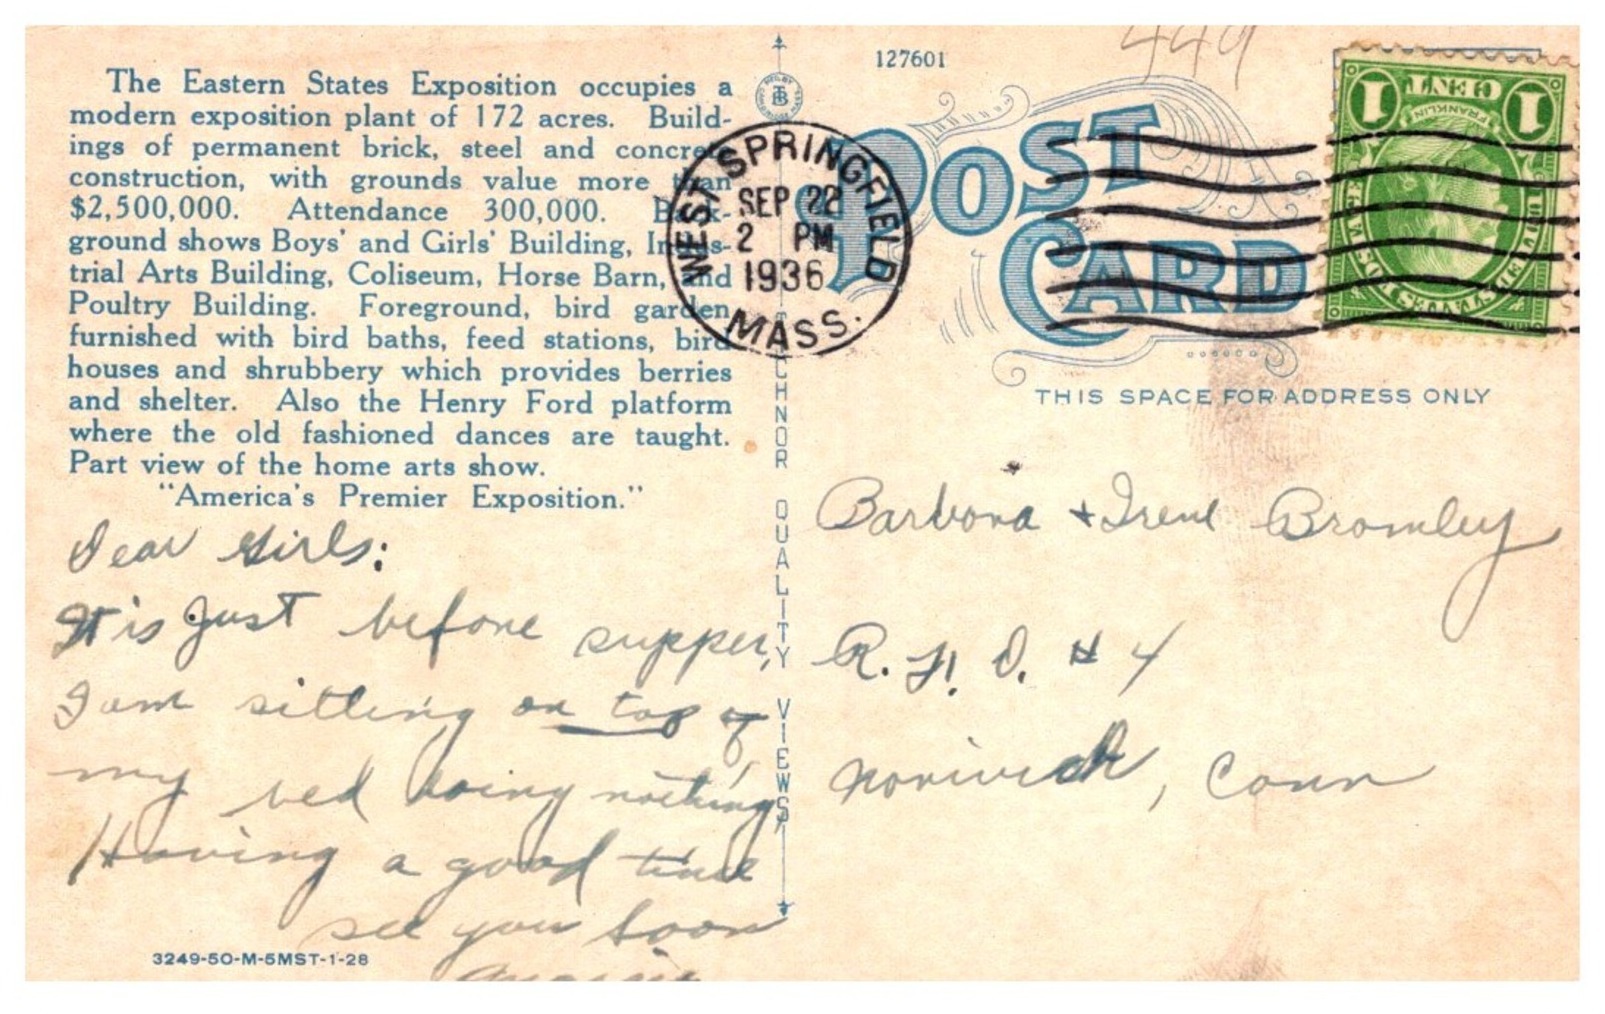 The Eastern States Exposition occupies a
modern exposition plant of 172 acres. Build-
ings of permanent brick, steel and concrete
construction, with grounds value more than
$2,500,000. Attendance 300,000. Back-
ground shows Boys' and Girls' Building, Indus-
trial Arts Building, Coliseum, Horse Barn, and
Poultry Building. Foreground, bird garden
furnished with bird baths, feed stations, bird
houses and shrubbery which provides berries
and shelter. Also the Henry Ford platform
where the old fashioned dances are taught.
Part view of the home arts show.
"America's Premier Exposition."
Dear Girls:
It is just before supper,
I am sitting on top of
my bed doing nothing,
Having a good time
see you soon
3249-50-M-5MST-1-28
TB
TICHNOR QUALITY VIEWS
WEST SPRINGFIELD
SEP 22
2 PM
1936
MASS.
127601
449
POST
CARD
THIS SPACE FOR ADDRESS ONLY
1 CENT 1
FRANKLIN
UNITED STATES POSTAGE
Barbara + Irene Bromley
R. F. D. # 4
Norwich, Conn